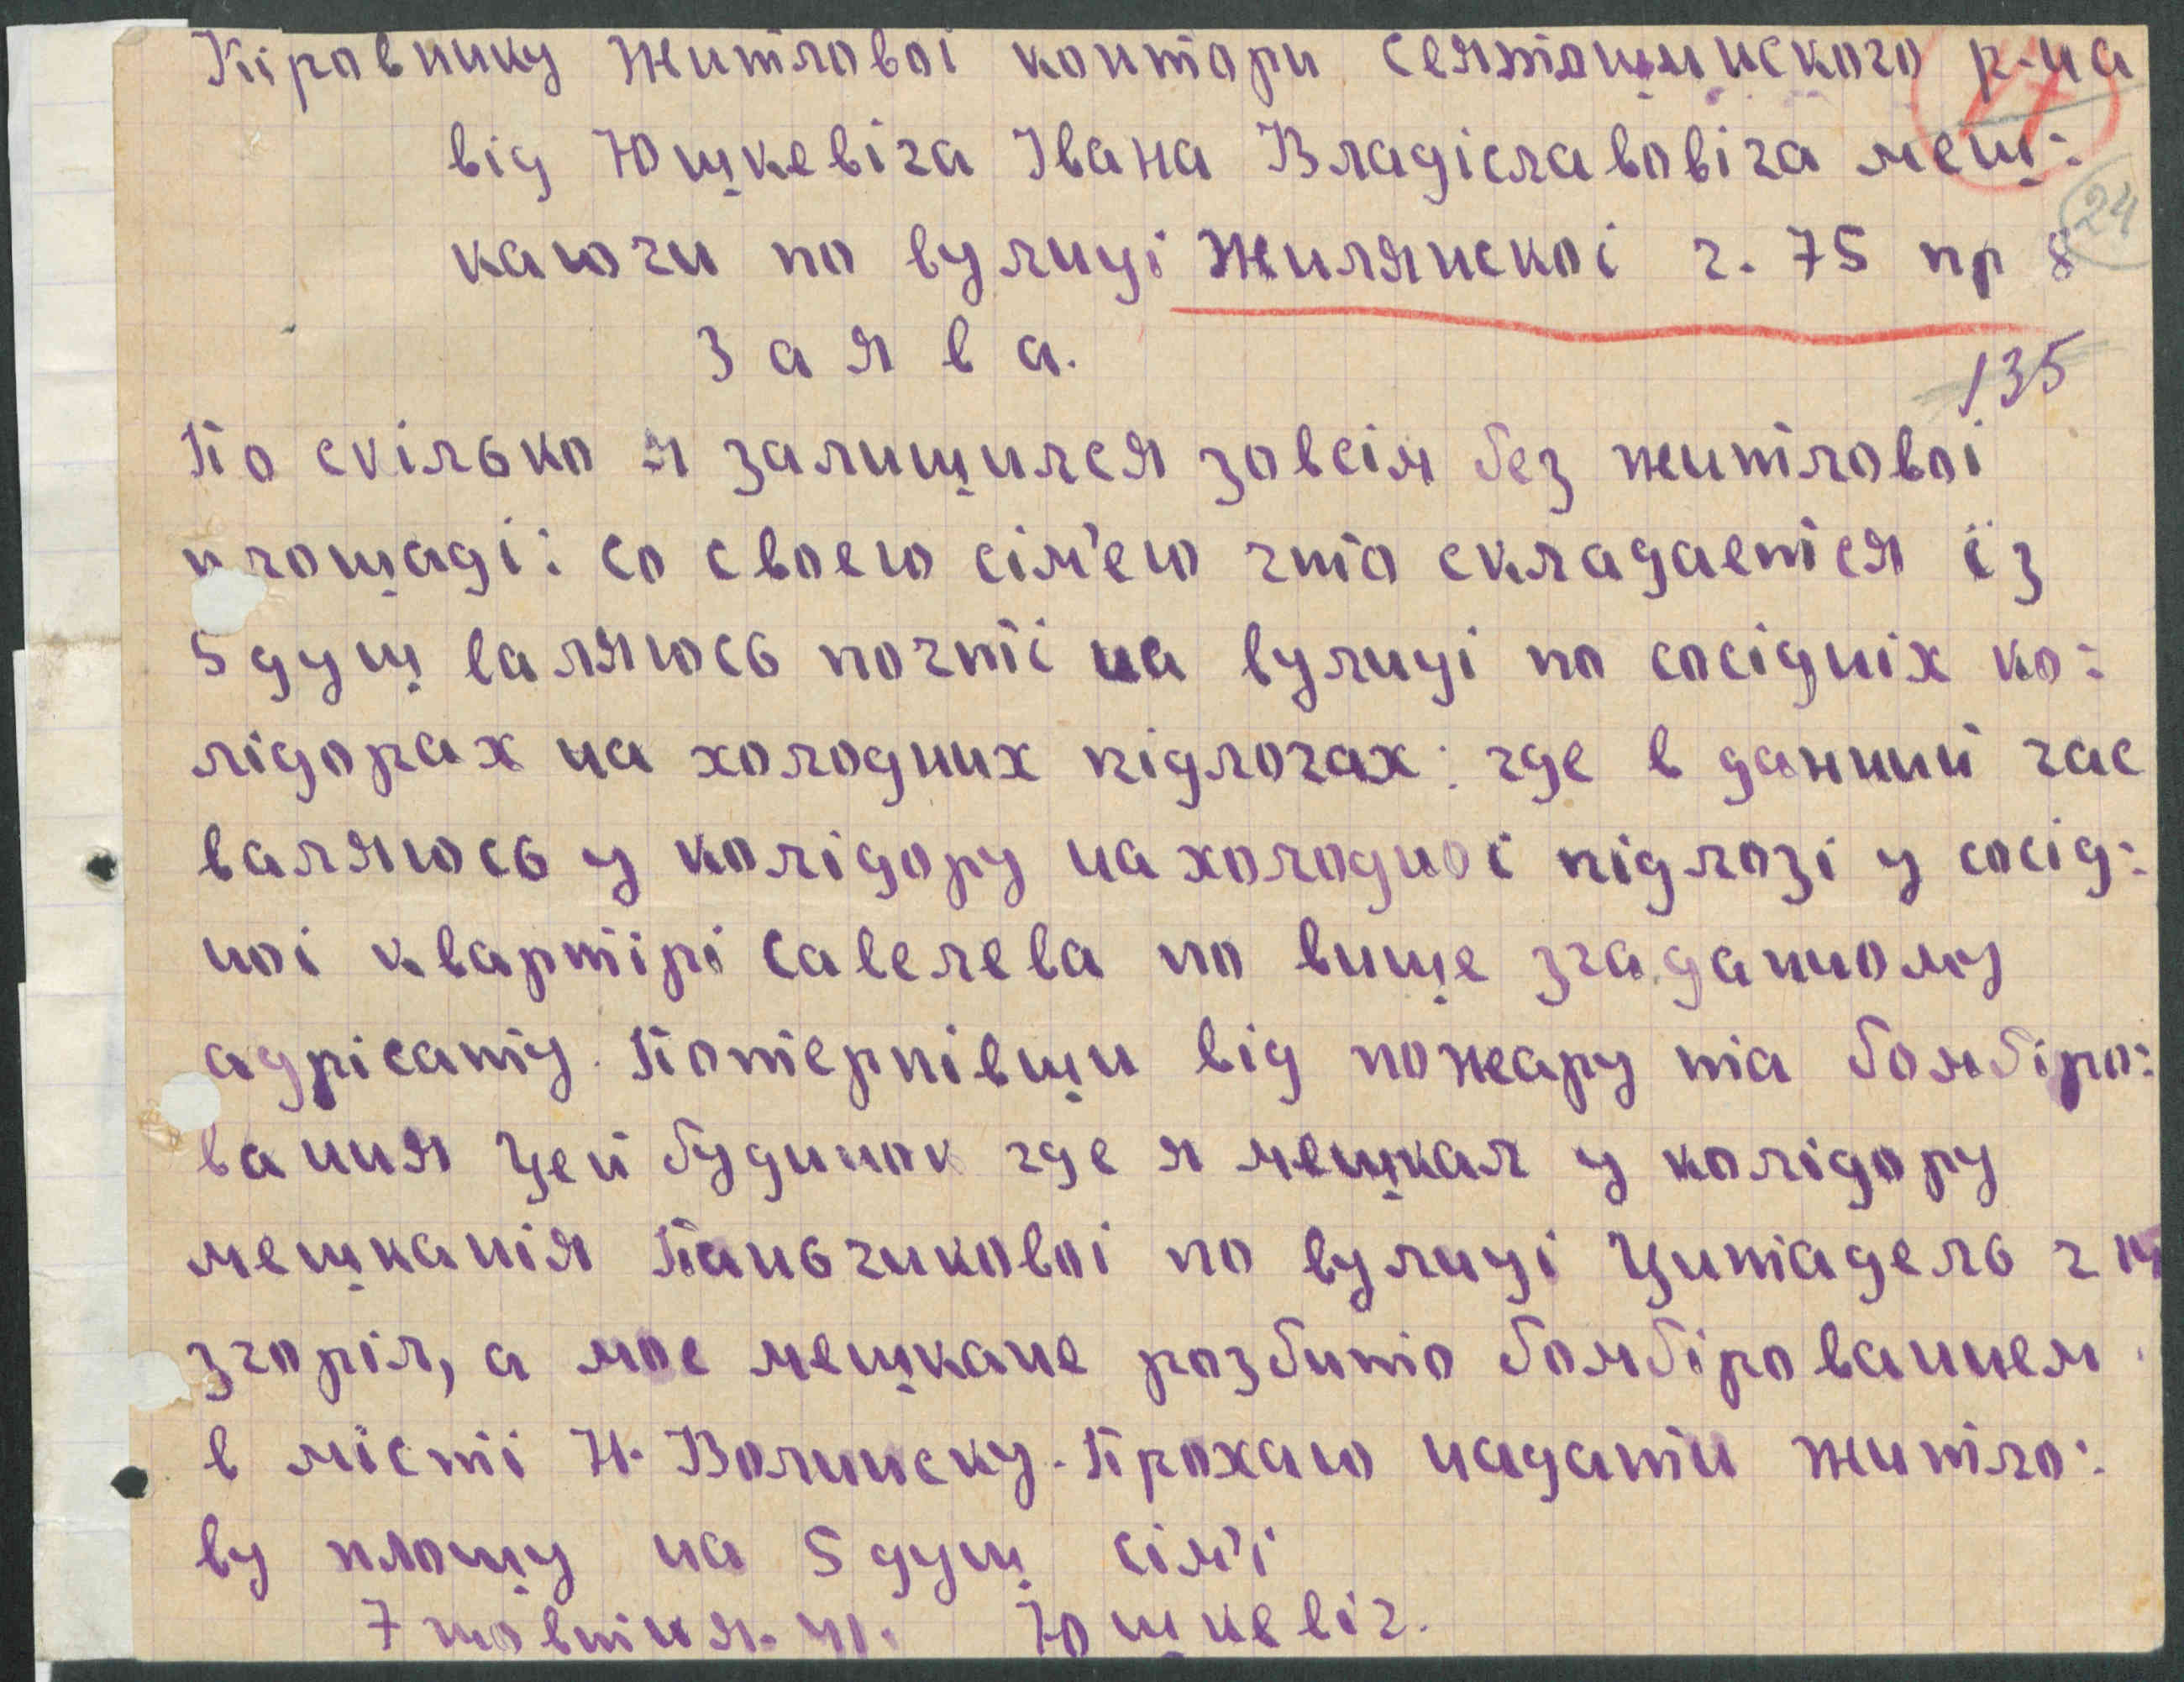 Кіровнику Житловоі контори Святошинского р-на
17
від Юшкевіча Івана Владіславовіча меш:
24
каючи по вулиці Жилянскоі ч. 75 пр 8
Заява.
135
По скілько я залишился зовсім без житловоі
площаді: со своею сім'ею что складается із
5 душ валяюсь почті на вулиці по сосідніх ко:
лідорах на холодних підлогах: где в данний час
валяюсь у колідору на холодноі підлозі у сосід:
ноі квартірі Савелева по више згаданному
адрісату. Потерпівши від пожару та бомбіро:
вания Цей будинок где я мешкал у колідору
мешканія Паньчиковоі по вулиці Цитадель ч
згоріл, а мое мешкане розбито бомбірованием
в місті Н. Волинску. Прохаю надати житло:
ву площу на 5 душ сім'ї
7 жовтня. 41. Юшкевіч.